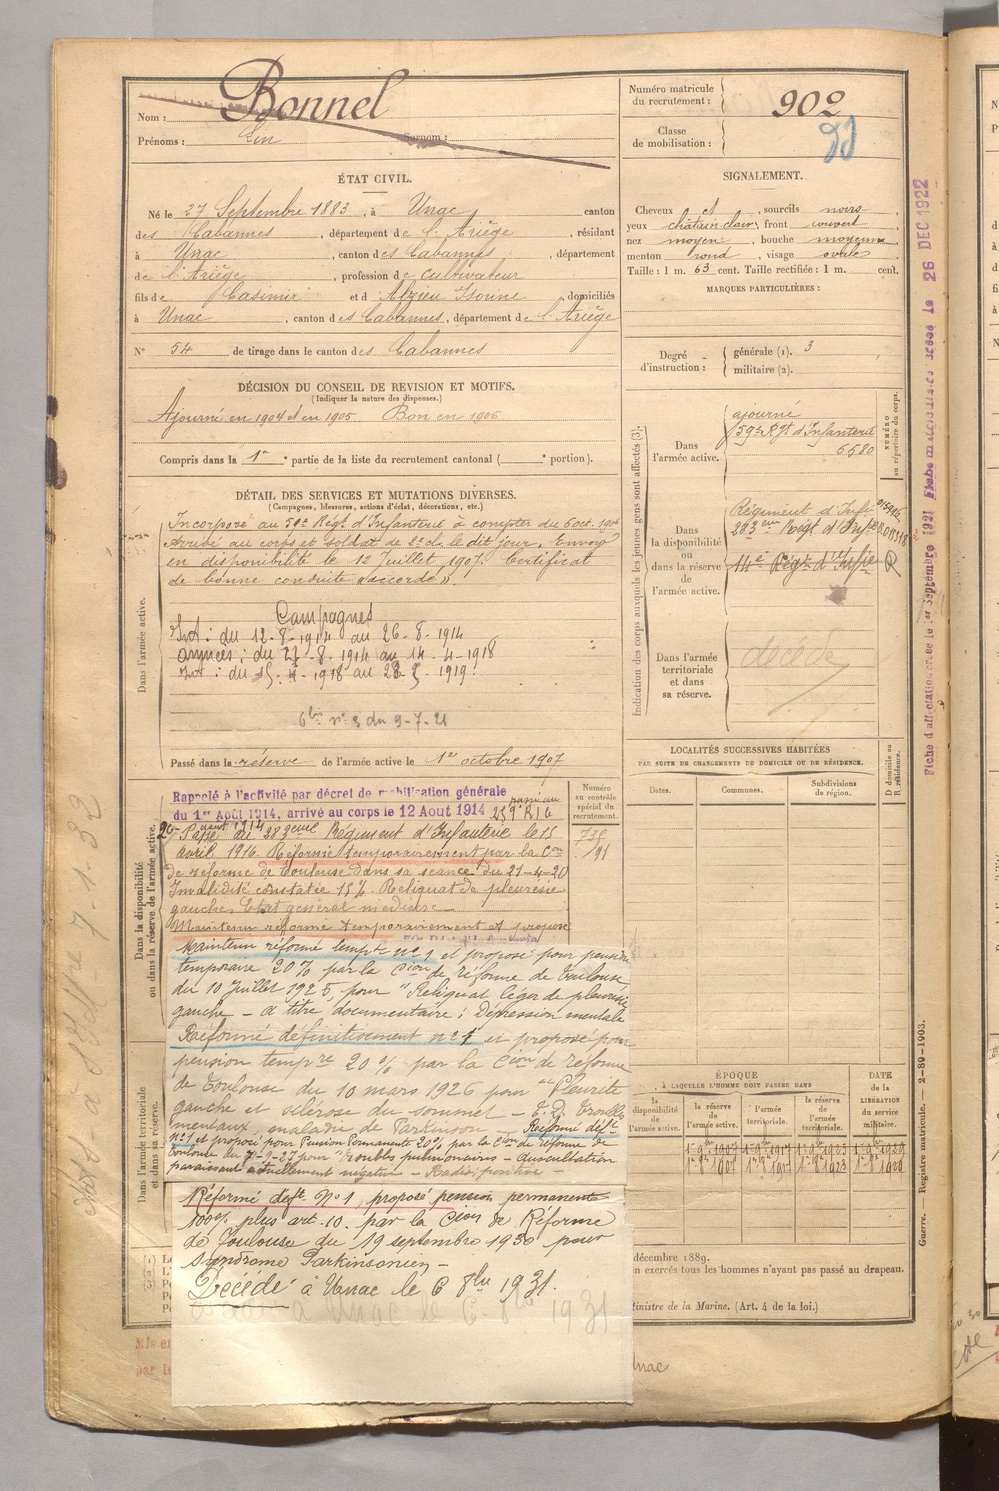 Nom : Bonnel
Prénoms : Lin Surnom :
Numéro matricule du recrutement : 902
Classe de mobilisation :
ÉTAT CIVIL.
Né le 27 Septembre 1883, à Unac canton
des Cabannes, département de l'Ariège, résidant
à Unac, canton des Cabannes, département
de l'Ariège, profession de cultivateur
fils de Casimir et d'Alzieu Isonne, domiciliés
à Unac, canton des Cabannes, département de l'Ariège
N° 54 de tirage dans le canton des Cabannes
SIGNALEMENT.
Cheveux et, sourcils noirs
yeux châtain clair, front couvert
nez moyen, bouche moyenne
menton rond, visage ovale
Taille : 1 m. 63 cent. Taille rectifiée : 1 m. cent.
MARQUES PARTICULIÈRES :
Degré d'instruction : générale (1). 3
militaire (2).
DÉCISION DU CONSEIL DE REVISION ET MOTIFS.
(Indiquer la nature des dispenses.)
Ajourné en 1904 et en 1905 Bon en 1906
Compris dans la 1re partie de la liste du recrutement cantonal ( e portion).
DÉTAIL DES SERVICES ET MUTATIONS DIVERSES.
(Campagnes, blessures, actions d'éclat, décorations, etc.)
Dans l'armée active.
Incorporé au 59e Régt d'Infanterie à compter du 6 oct. 1906
Arrivé au corps et soldat de 2e cl. le dit jour. Envoyé
en disponibilité le 12 Juillet 1907. Certificat
de bonne conduite "accordé".
Campagnes
Int : du 12-8-1914 au 26-8-1914
armées : du 27-8-1914 au 14-4-1918
Int : du 15-4-1918 au 28-2-1919.
6bis n° 3 du 9-7-21
Passé dans la réserve de l'armée active le 1er octobre 1907
Indication des corps auxquels les jeunes gens sont affectés (3).
Dans l'armée active.
ajourné
59e Régt d'Infanterie
6580
NUMÉRO au répertoire du corps.
Dans la disponibilité ou dans la réserve de l'armée active.
Régiment d'Inf
283eme Régt d'Infie
14e Régt d'Infie
Dans l'armée territoriale et dans sa réserve.
décédé
LOCALITÉS SUCCESSIVES HABITÉES
PAR SUITE DE CHANGEMENTS DE DOMICILE OU DE RÉSIDENCE.
Dates. Communes. Subdivisions de région. D domicile ou R résidence.
Dans la disponibilité ou dans la réserve de l'armée active.
Rappelé à l'activité par décret de mobilisation générale
du 1er Août 1914, arrivé au corps le 12 Août 1914 passé au 259e R I le
26 aout 1914
Passé au 283eme Régiment d'Infanterie le 15
avril 1916. Réformé temporairement par la Con
de réforme de Toulouse dans sa séance du 21-4-20
Invalidité constatée 15%. Reliquat de pleurésie
gauche. Etat général médiocre
Maintenu réformé temporairement et proposé
Numéro au contrôle spécial du recrutement.
Maintenu réformé tempt n° 1 et proposé pour pension
temporaire 20% par la Cion de réforme de Toulouse
du 10 Juillet 1925, pour "Reliquat léger de pleurésie
gauche – A titre documentaire : Dépression mentale
Réformé définitivement n° 1 et proposé pour
pension tempre 20% par la Cion de réforme
de Toulouse du 10 mars 1926 pour "Pleurite
gauche et sclérose du sommet – T.D. Troubles
mentaux, maladie de Parkinson – Réformé deft
n° 1 et proposé pour Pension Permanente 20% par la Cion de réforme de
Toulouse du 7-9-27 pour "Troubles pulmonaires – Auscultation
paraissant actuellement négative – Radio positive –
Réformé deft N° 1, proposé pension permanente
100% plus art. 10. par la Cion de Réforme
de Toulouse du 19 septembre 1930 pour
syndrome Parkinsonien –
Décédé à Unac le 6 8bre 1931.
Dans l'armée territoriale et dans sa réserve.
ÉPOQUE
À LAQUELLE L'HOMME DOIT PASSER DANS
la disponibilité de l'armée active. la réserve de l'armée active. l'armée territoriale. la réserve de l'armée territoriale.
DATE de la LIBÉRATION du service militaire.
décembre 1889.
n exercés tous les hommes n'ayant pas passé au drapeau.
Ministre de la Marine. (Art. 4 de la loi.)
Unac
Guerre. – Registre matricule. – 2-89-1903.
26 DEC 1922